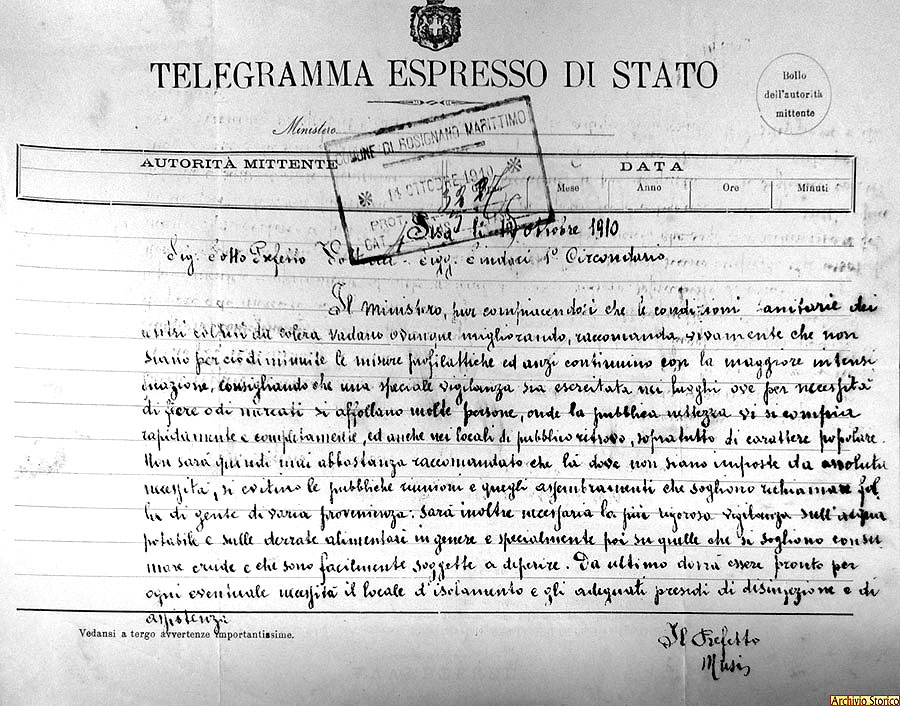 TELEGRAMMA ESPRESSO DI STATO
Bollo
dell'autorità
mittente
Ministero
COMUNE DI ROSIGNANO MARITTIMO
AUTORITÀ MITTENTE
DATA
14 OTTOBRE 1910
Giorno Mese Anno Ore Minuti
PROT.
CAT.
Pisa li Ottobre 1910
Sig. Sotto Prefetto Volterra - Sigg. Sindaci 1° Circondario
Il Ministero, pur compiacendosi che le condizioni sanitarie dei
colpiti da colera vadano ovunque migliorando, raccomanda vivamente che non
siano perciò diminuite le misure profilattiche ed anzi continuino con la maggiore intensi
ficazione, consigliando che una speciale vigilanza sia esercitata nei luoghi ove per necessità
di fiere o di mercati si affollano molte persone, onde la pubblica nettezza vi si compia
rapidamente e completamente, ed anche nei locali di pubblico ritrovo, sopratutto di carattere popolare.
Non sarà quindi mai abbastanza raccomandato che là dove non siano imposte da assoluta
necessità, si evitino le pubbliche riunioni e quegli assembramenti che sogliono richiamare fol
la di gente di varia provenienza. Sarà inoltre necessaria la più rigorosa vigilanza sull'acqua
potabile e sulle derrate alimentari in genere e specialmente poi su quelle che si sogliono consu
mare crude e che sono facilmente soggette a deperire. Da ultimo dovrà essere pronto per
ogni eventuale necessità il locale d'isolamento e gli adeguati presidi di disinfezione e di
assistenza
Vedansi a tergo avvertenze importantissime.
Il Prefetto
Archivio Storico